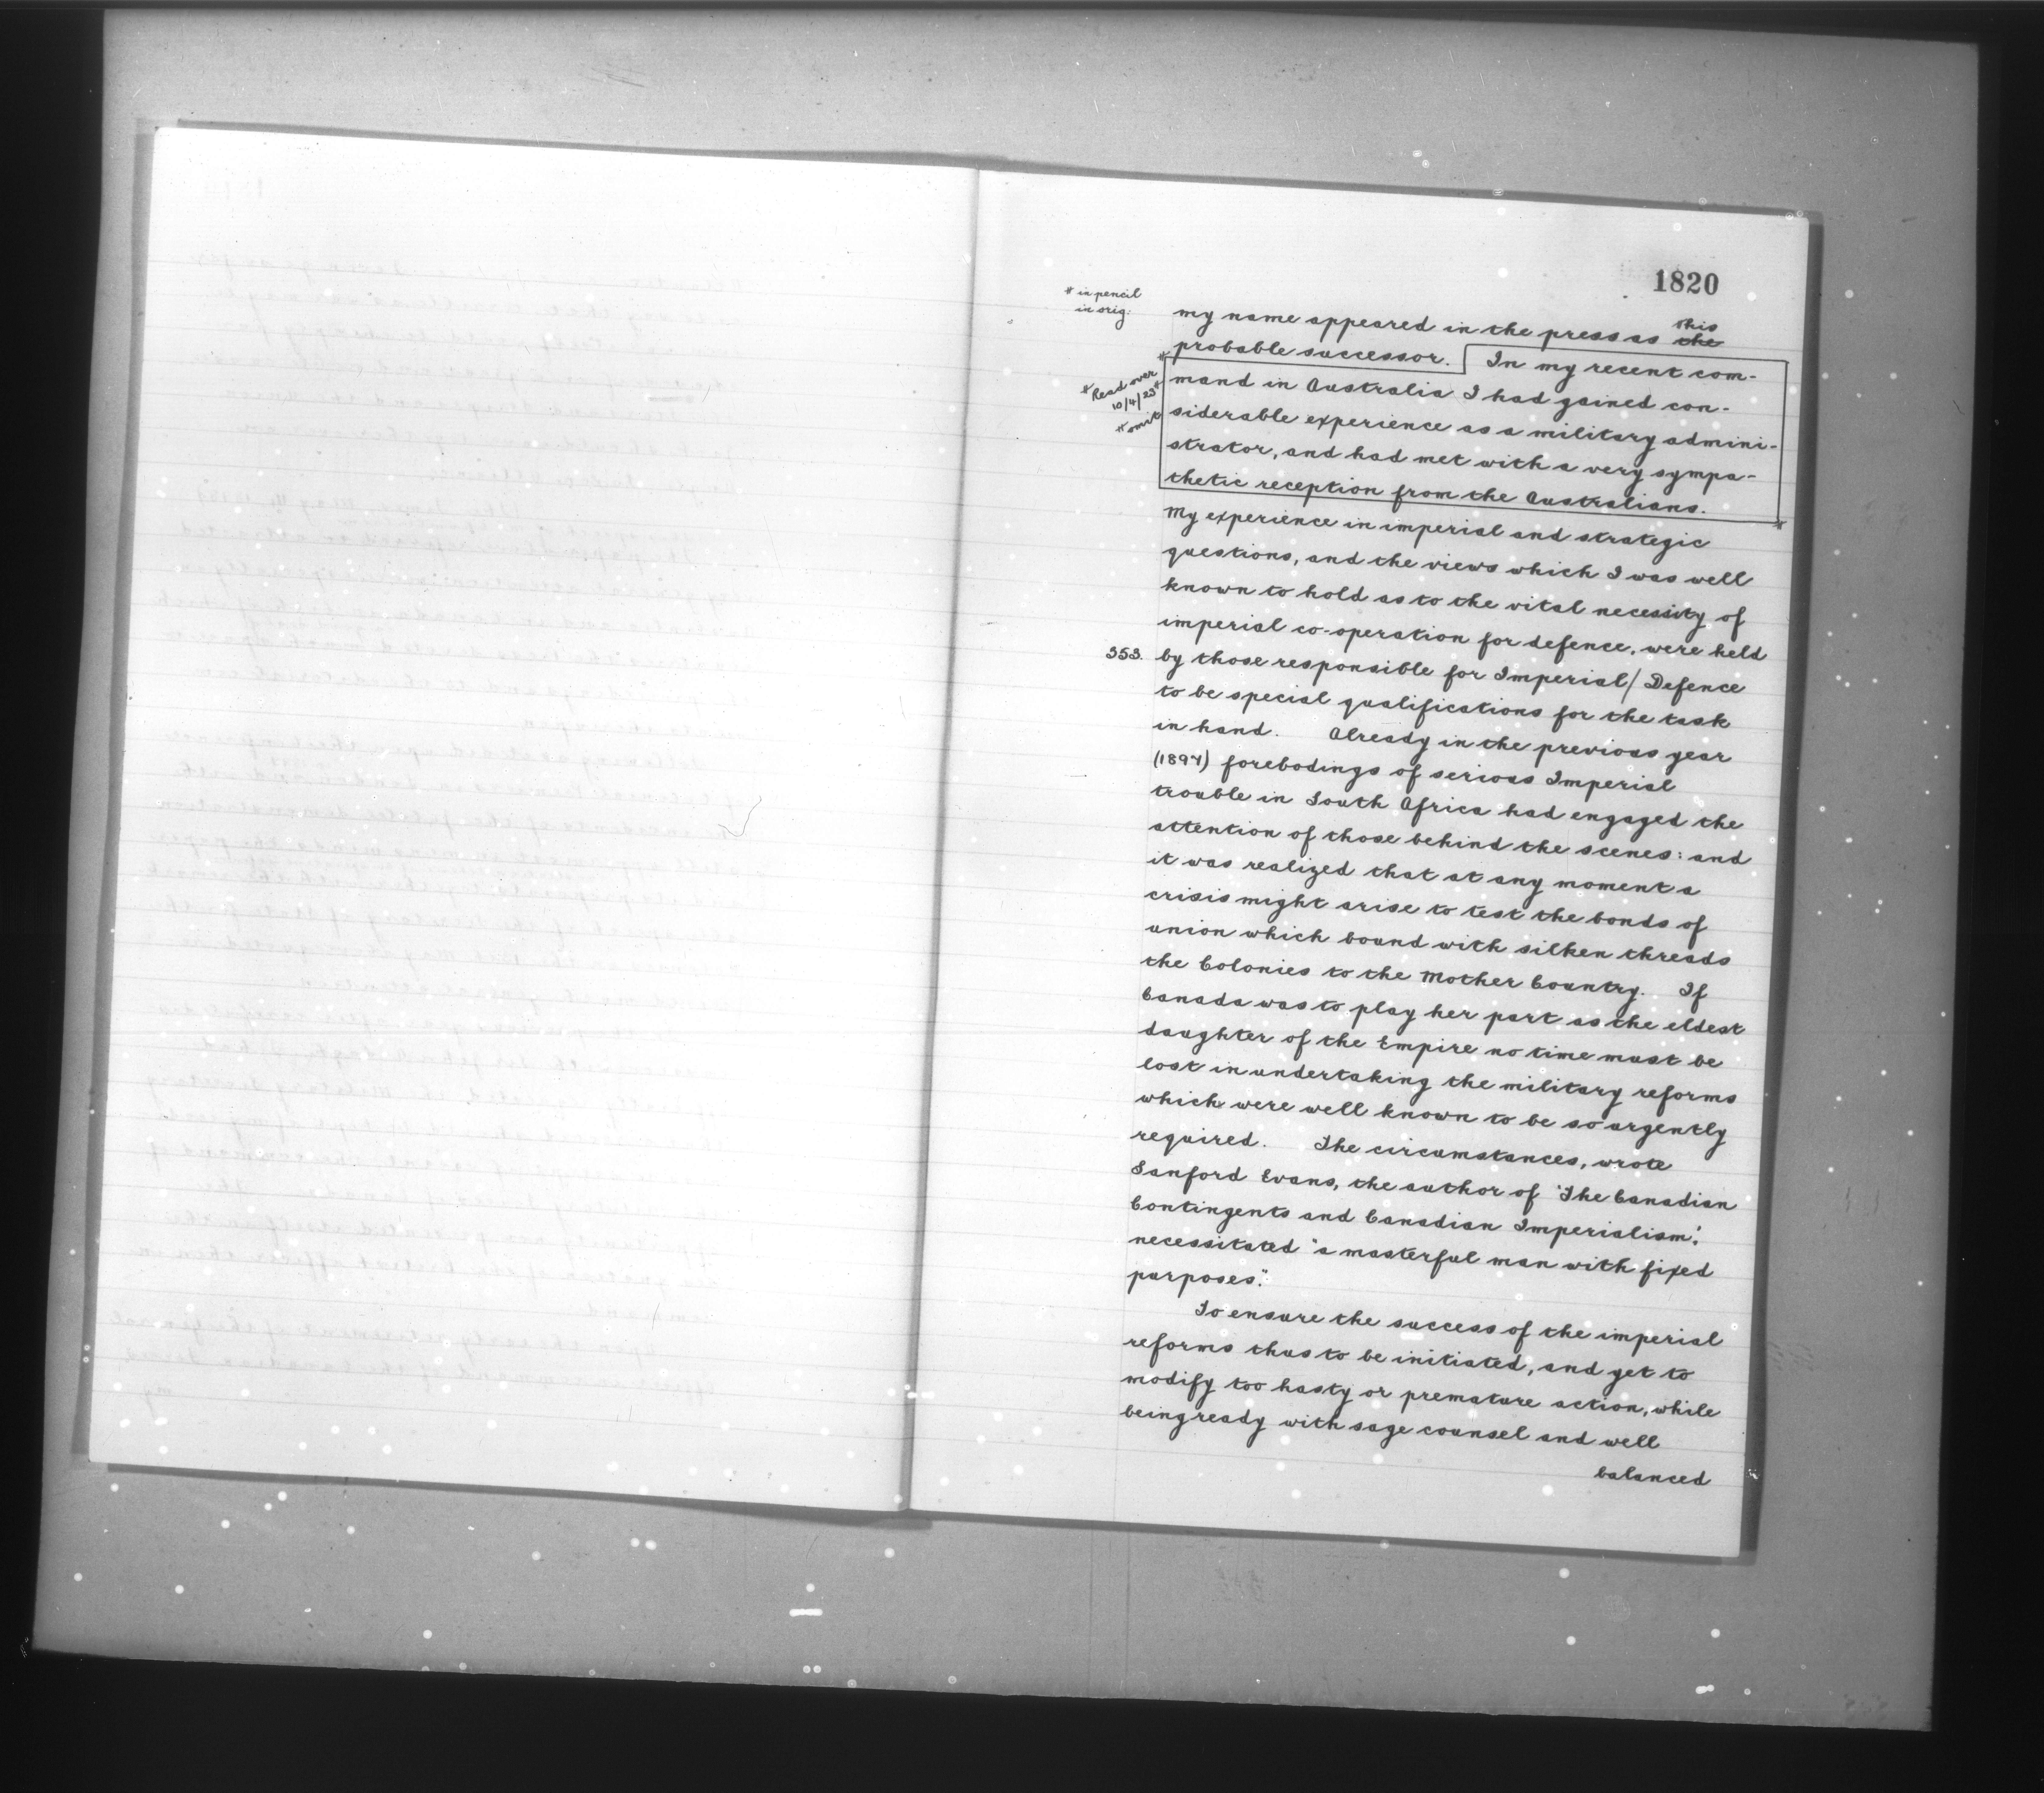 1820
# in pencil
in orig:
my name appeared in the press as the this
probable successor. In my recent com-
# Read over
10/4/23 #
# omit
mand in Australia I had gained con-
siderable experience as a military admini-
strator, and had met with a very sympa-
thetic reception from the Australians.
My experience in imperial and strategic
questions, and the views which I was well
known to hold as to the vital necessity of
imperial co-operation for defence, were held
353. by those responsible for Imperial/ Defence
to be special qualifications for the task
in hand. Already in the previous year
(1897) forebodings of serious Imperial
trouble in South Africa had engaged the
attention of those behind the scenes: and
it was realized that at any moment a
crisis might arise to test the bonds of
union which bound with silken threads
the Colonies to the Mother Country. If
Canada was to play her part as the eldest
daughter of the Empire no time must be
lost in undertaking the military reforms
which were well known to be so urgently
required. The circumstances, wrote
Sanford Evans, the author of 'The Canadian
Contingents and Canadian Imperialism',
necessitated "a masterful man with fixed
purposes."
To ensure the success of the imperial
reforms thus to be initiated, and yet to
modify too hasty or premature action, while
being ready with sage counsel and well
balanced